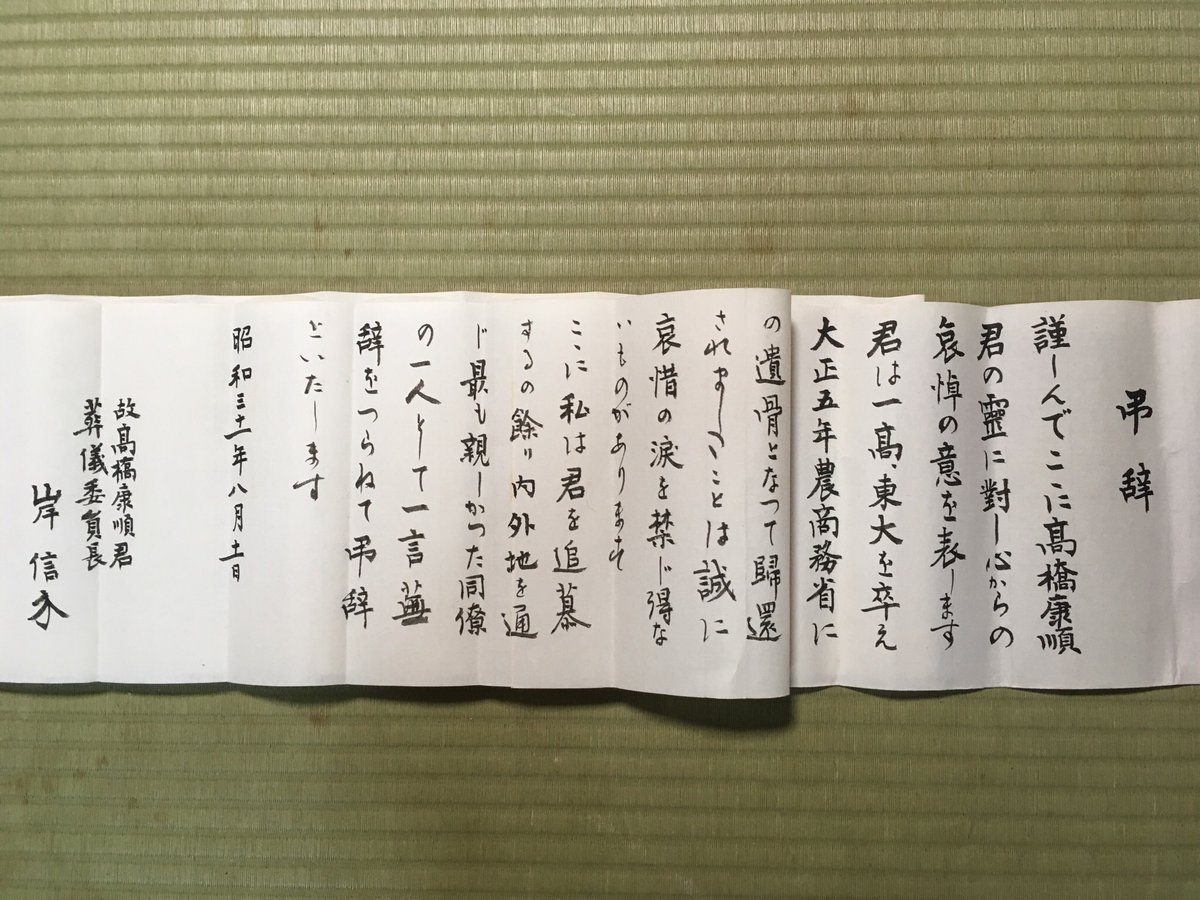 弔辞
謹んでここに髙橋康順
君の靈に對し心からの
哀悼の意を表します
君は一高、東大を卒え
大正五年農商務省に
の遺骨となつて歸還
されましたことは誠に
哀惜の涙を禁じ得な
いものがあります
ここに私は君を追慕
するの餘り内外地を通
じ最も親しかつた同僚
の一人として一言蕪
辞をつらねて弔辞
といたします
昭和三十一年八月十一日
故髙橋康順君
葬儀委員長
岸信介